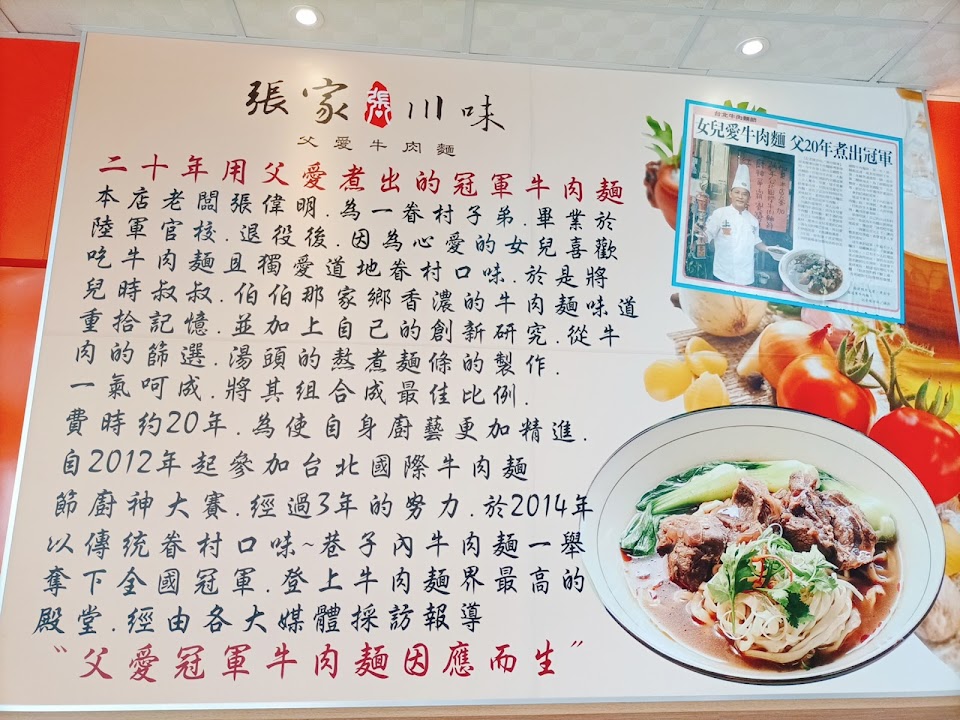 張家 張 川味
父愛牛肉麵
二十年用父愛煮出的冠軍牛肉麵
本店老闆張偉明.為一眷村子弟.畢業於
陸軍官校.退役後.因為心愛的女兒喜歡
吃牛肉麵且獨愛道地眷村口味.於是將
兒時叔叔.伯伯那家鄉香濃的牛肉麵味道
重拾記憶.並加上自己的創新研究.從牛
肉的篩選.湯頭的熬煮麵條的製作.
一氣呵成.將其組合成最佳比例.
費時約20年.為使自身廚藝更加精進.
自2012年起參加台北國際牛肉麵
節廚神大賽.經過3年的努力.於2014年
以傳統眷村口味~巷子內牛肉麵一舉
奪下全國冠軍.登上牛肉麵界最高的
殿堂.經由各大媒體採訪報導
"父愛冠軍牛肉麵因應而生"
台北牛肉麵節
女兒愛牛肉麵 父20年煮出冠軍